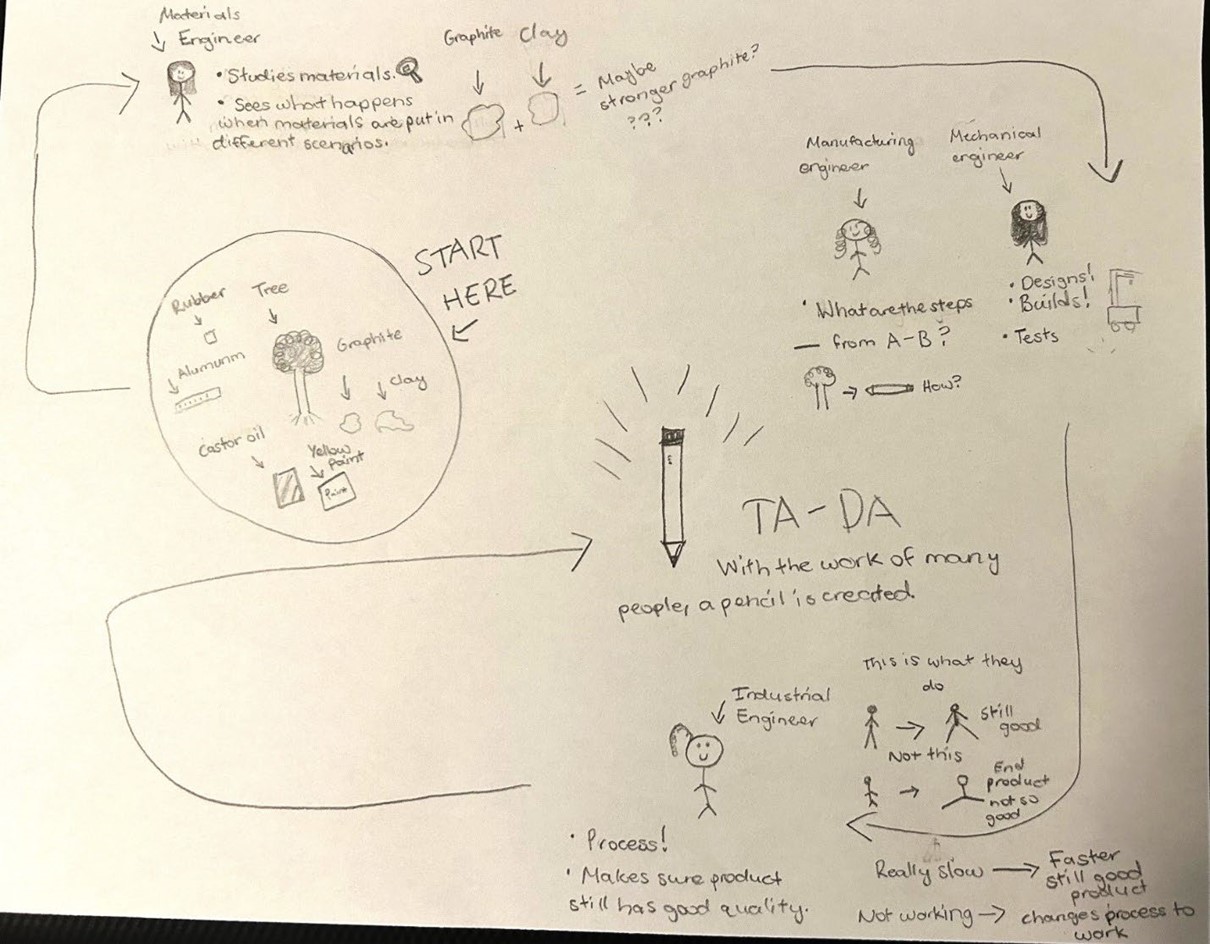 Materials
Engineer
• Studies materials.
• Sees what happens
when materials are put in
different scenarios.
Graphite Clay
+
= Maybe
stronger graphite?
???
Manufacturing
engineer
Mechanical
engineer
• What are the steps
from A-B?
How?
• Designs!
• Builds!
• Tests
START
HERE
Rubber
Tree
Alumunm
Graphite
Clay
Castor oil
Yellow
Paint
Paint
TA-DA
With the work of many
people, a pencil is created.
Industrial
Engineer
• Process!
• Makes sure product
still has good quality.
This is what they
do
still
good
Not this
End
product
not so
good
Really slow → Faster
still good
product
Not working → changes process to
work